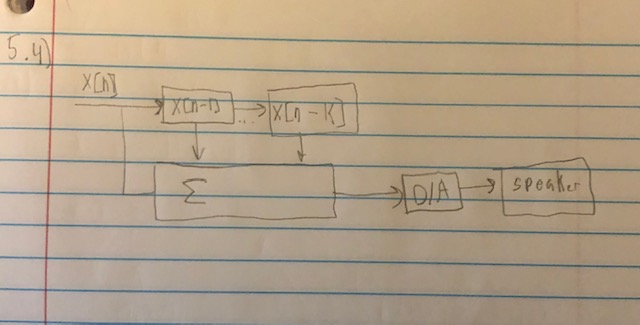 5.4)
X[n]
X[n-1] ... X[n-K]
Σ D/A speaker